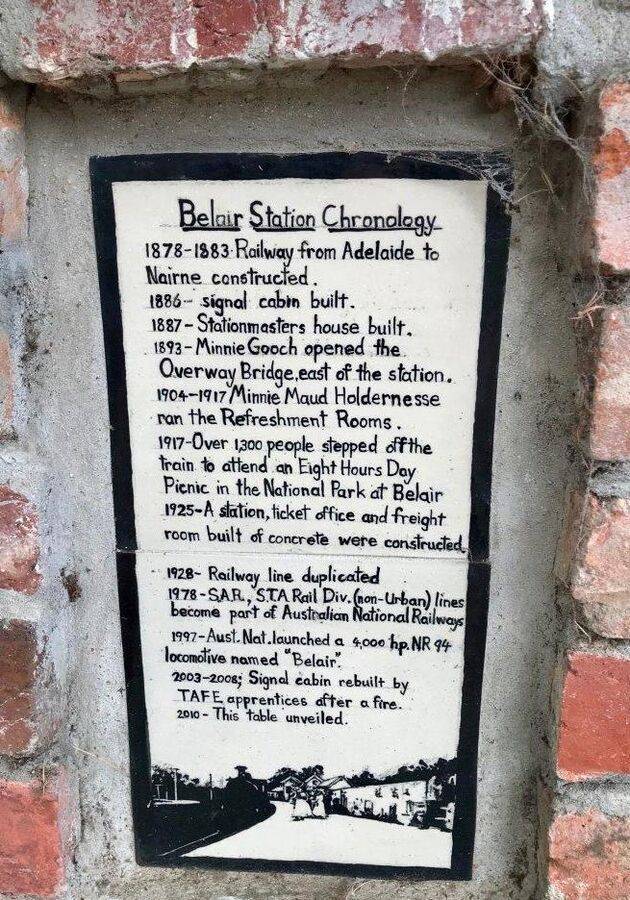 Belair Station Chronology
1878-1883-Railway from Adelaide to
Nairne constructed.
1886- signal cabin built.
1887-Stationmasters house built.
1893-Minnie Gooch opened the
Overway Bridge,east of the station.
1904-1917 Minnie Maud Holdernesse
ran the Refreshment Rooms.
1917-Over 1,300 people stepped off the
train to attend an Eight Hours Day
Picnic in the National Park at Belair
1925-A station,ticket office and freight
room built of concrete were constructed.
1928- Railway line duplicated
1978-S.A.R., S.T.A Rail Div.(non-Urban) lines
become part of Australian National Railways
1997-Aust. Nat.launched a 4,000 hp. NR 94
locomotive named "Belair".
2003-2008; Signal cabin rebuilt by
TAFE apprentices after a fire.
2010- This table unveiled.